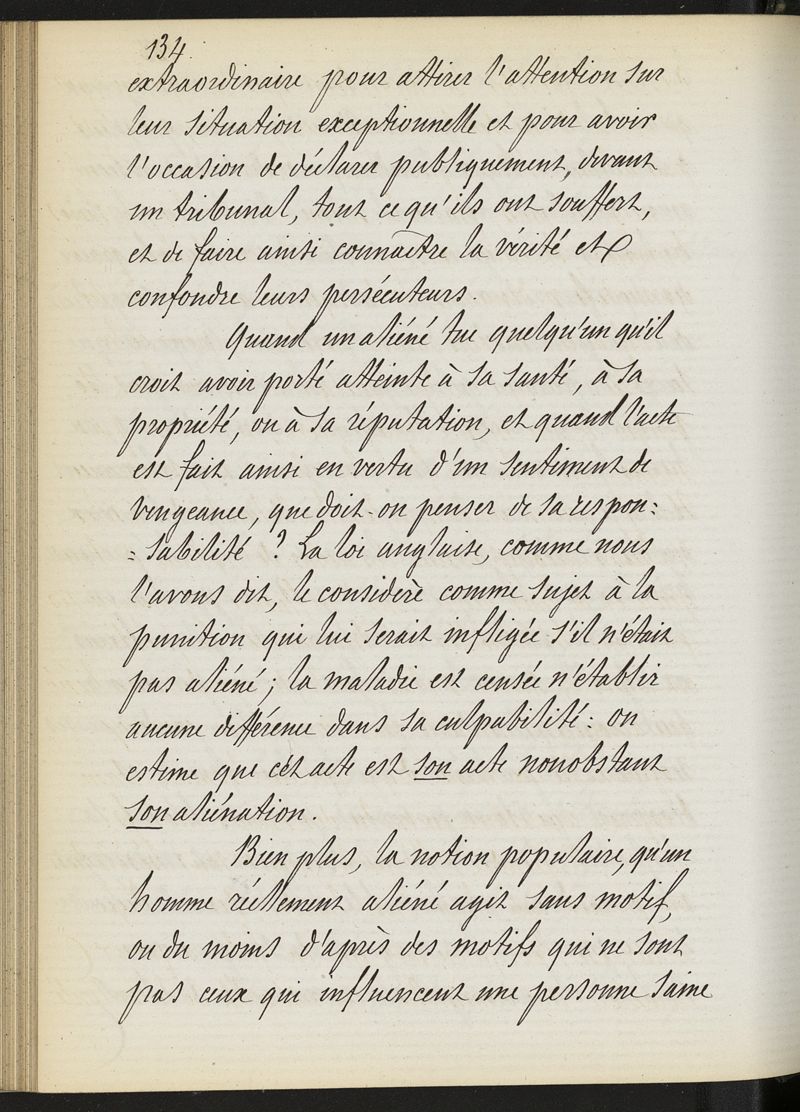 134.
extraordinaire pour attirer l'attention sur
leur situation exceptionnelle et pour avoir
l'occasion de déclarer publiquement, devant
un tribunal, tout ce qu'ils ont souffert,
et de faire ainsi connaître la vérité et
confondre leurs persécuteurs.
Quand un aliéné tue quelqu'un qu'il
croit avoir porté atteinte à sa santé, à sa
propriété, ou à sa réputation, et quand l'acte
est fait ainsi en vertu d'un sentiment de
vengeance, que doit-on penser de sa respon=
=sabilité ? La loi anglaise, comme nous
l'avons dit, le considère comme sujet à la
punition qui lui serait infligée s'il n'était
pas aliéné ; la maladie est censée n'établir
aucune différence dans sa culpabilité : on
estime que cet acte est son acte nonobstant
son aliénation.
Bien plus, la notion populaire, qu'un
homme réellement aliéné agit sans motif,
ou du moins d'après des motifs qui ne sont
pas ceux qui influencent une personne saine